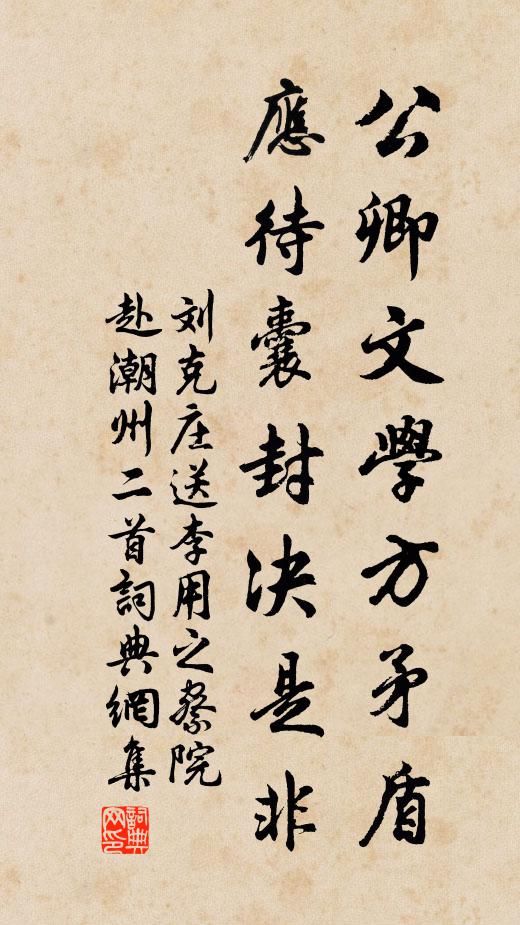 公卿文學方矛盾
應待囊封決是非
刘克庄送李用之察院
赴潮州二首詞典網集
詞典网印